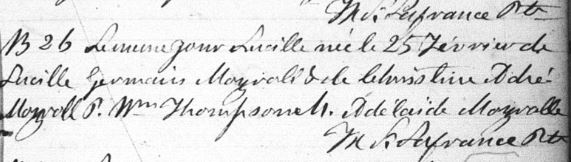 M. S. Lafrance Ptre
B 26 Le meme jour Lucille née le 25 Février de
Lucille Germain Mayrall & de Christine Adné
Mayrall P. Wm Thompson M. Adelaide Mayralle
M. S. Lafrance Ptre